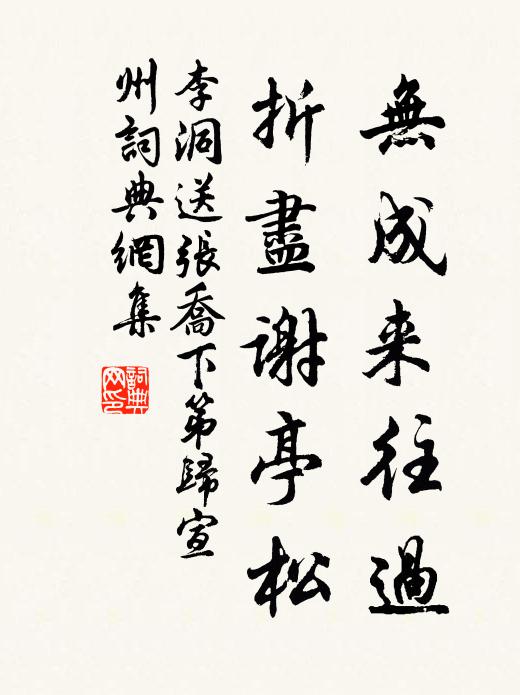 無成来往過
折盡謝亭松
李洞送張喬下第歸宣
州詞典網集
詞典
网印